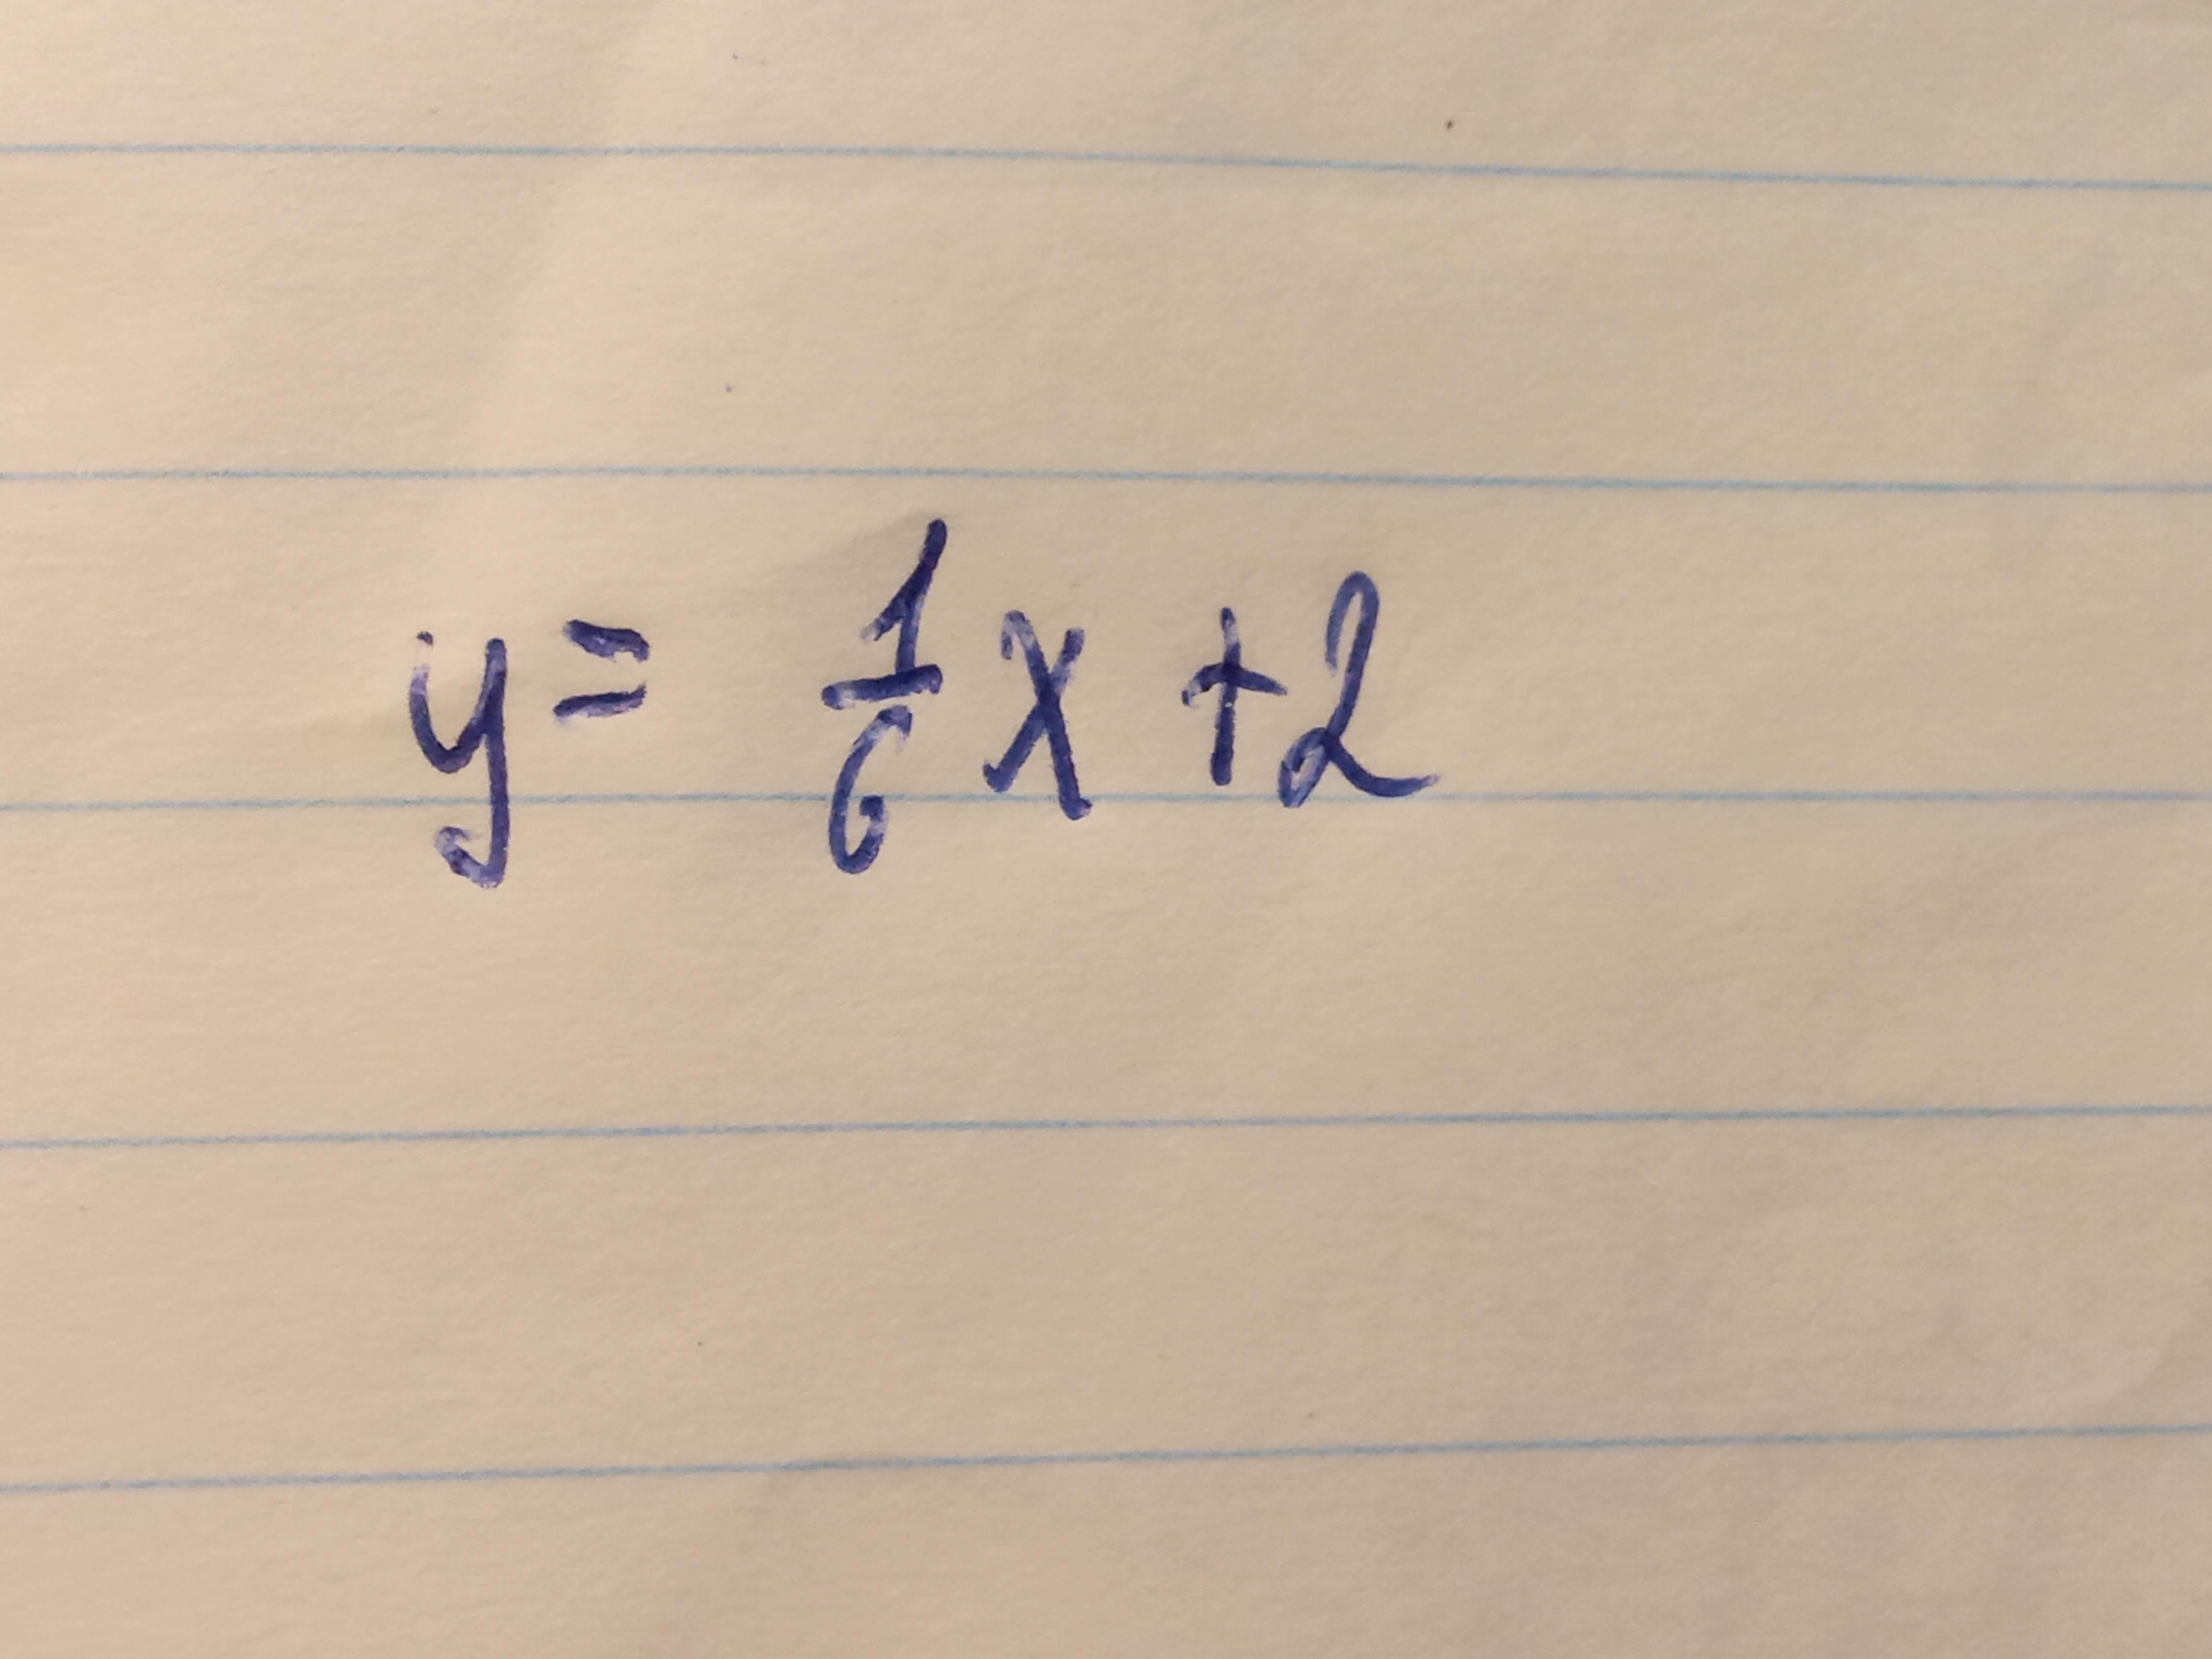 y = 1/6 x + 2